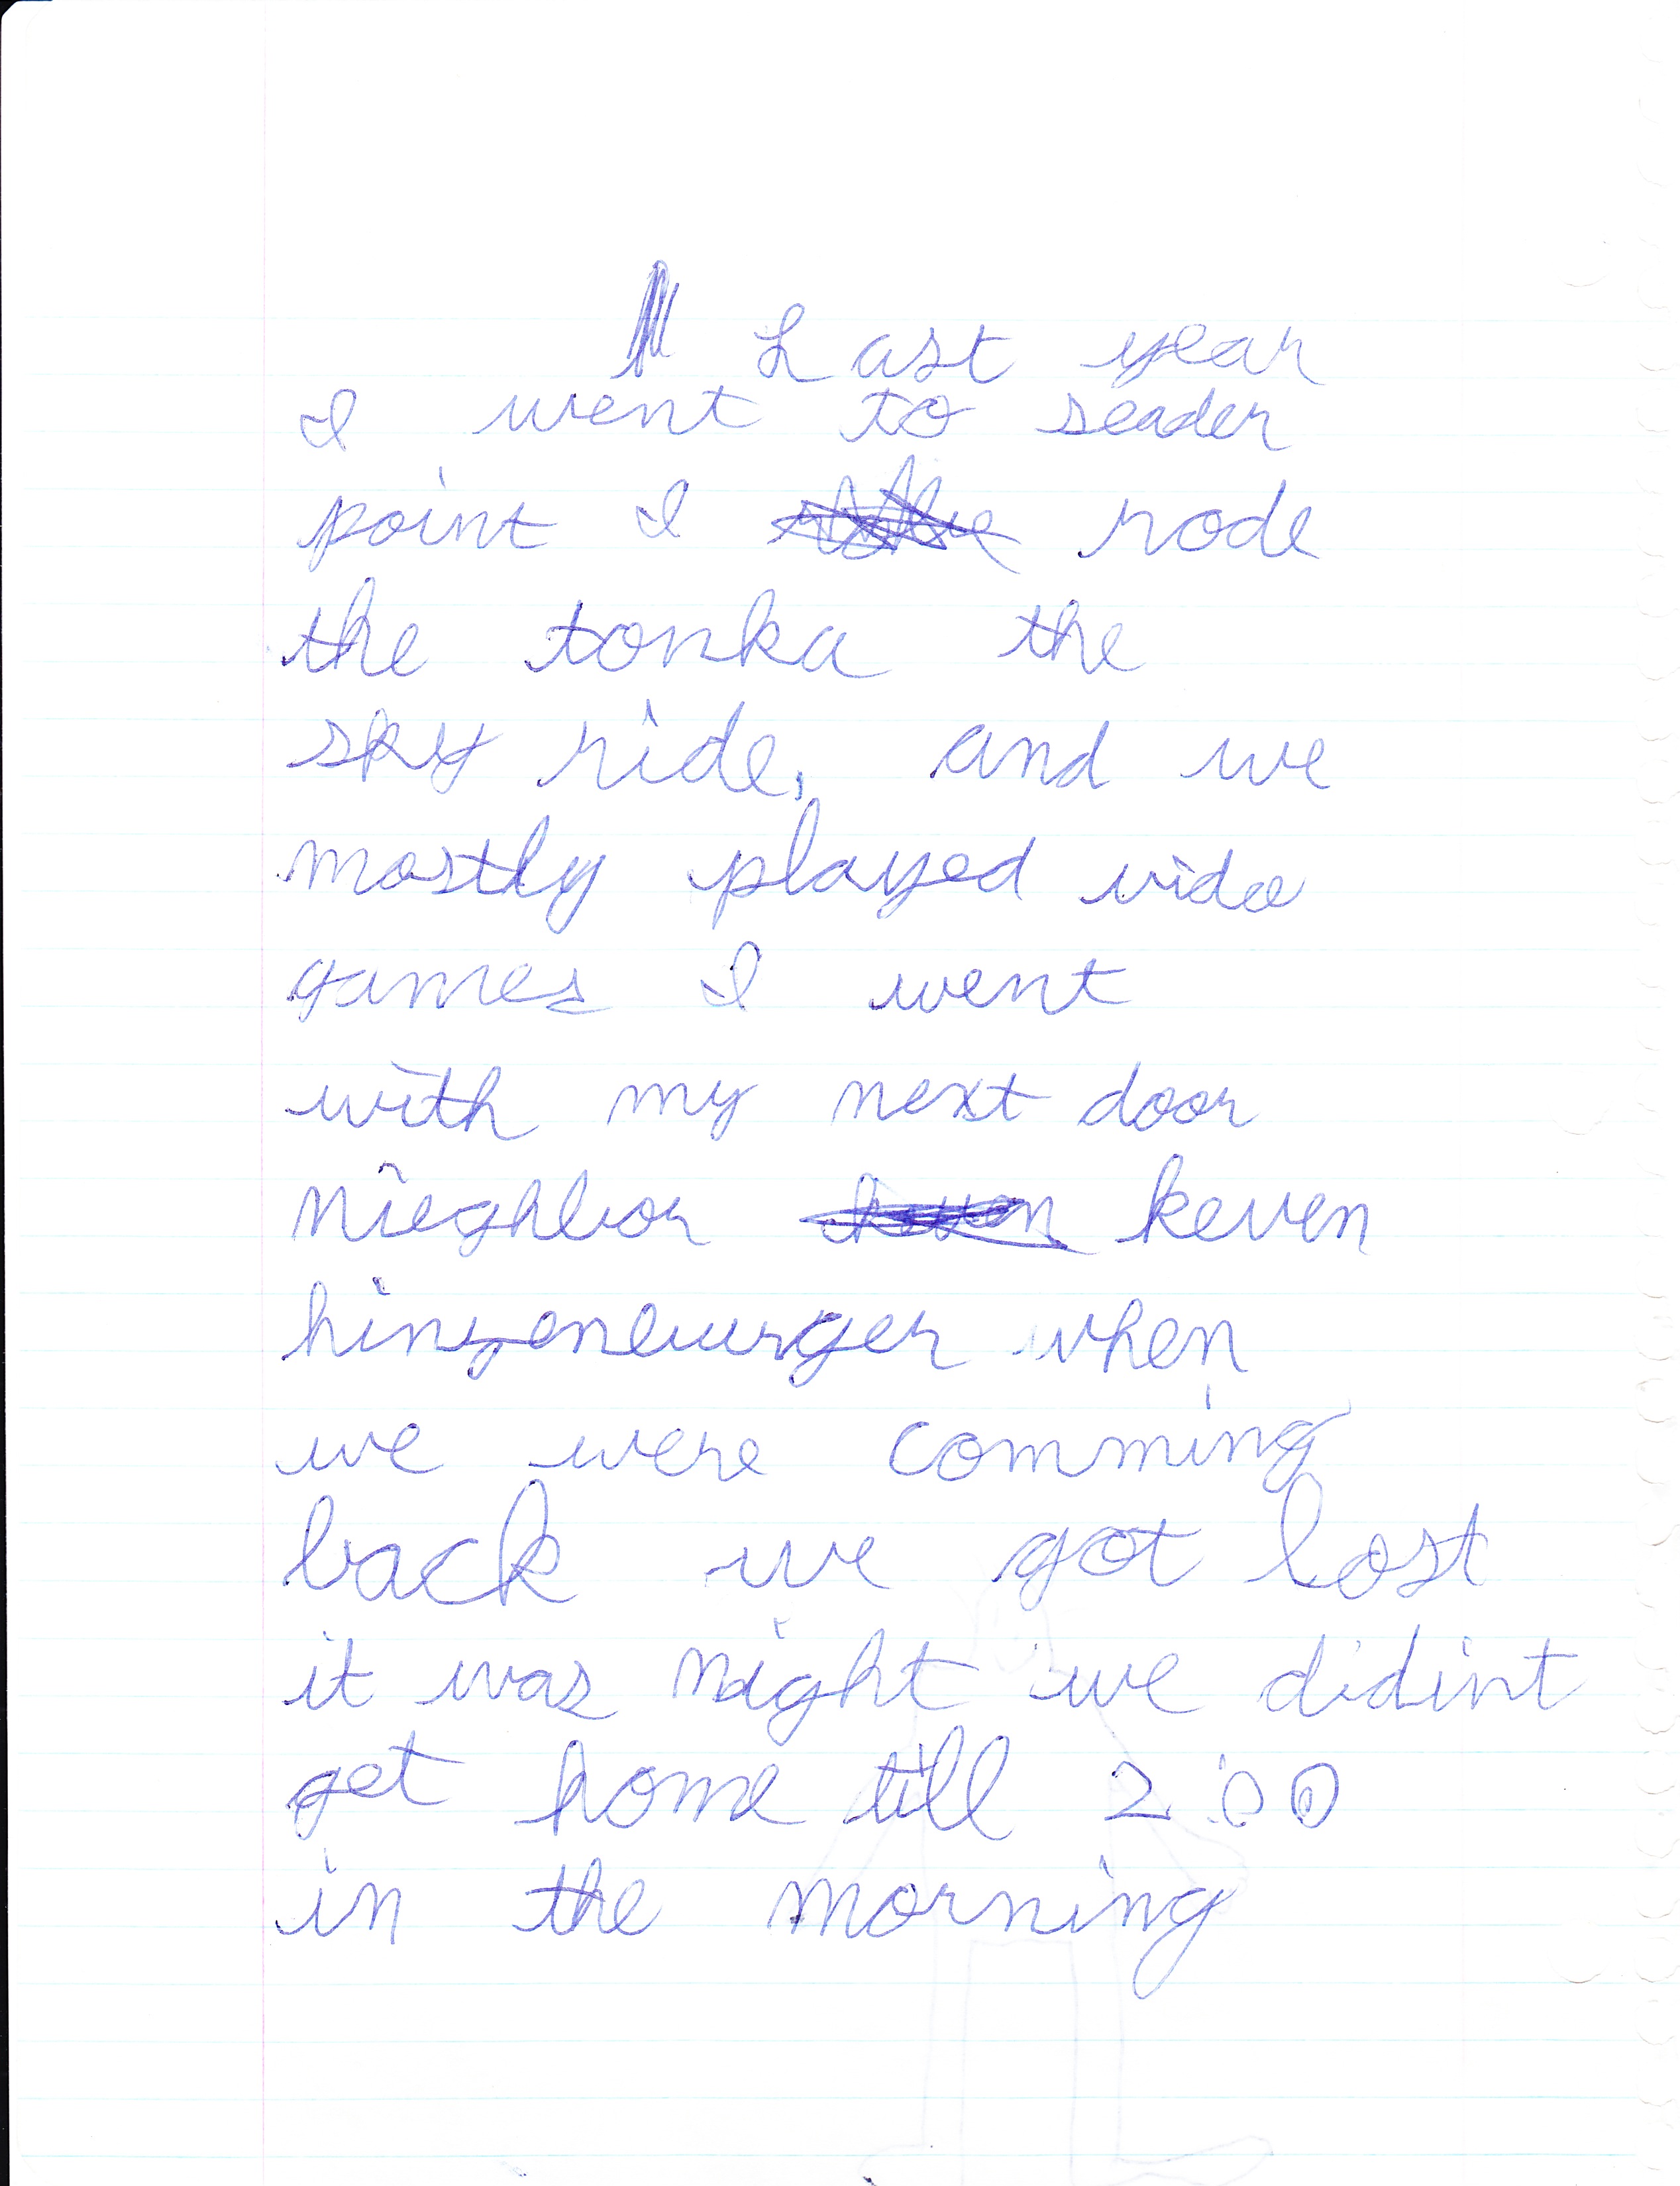 Last year
I went to seader
point I rode
the tonka the
sky ride, and we
mostly played vidoe
games I went
with my next door
nieghbor keven
when
we were comming
back we got lost
it was night we didint
get home till 2:00
in the morning